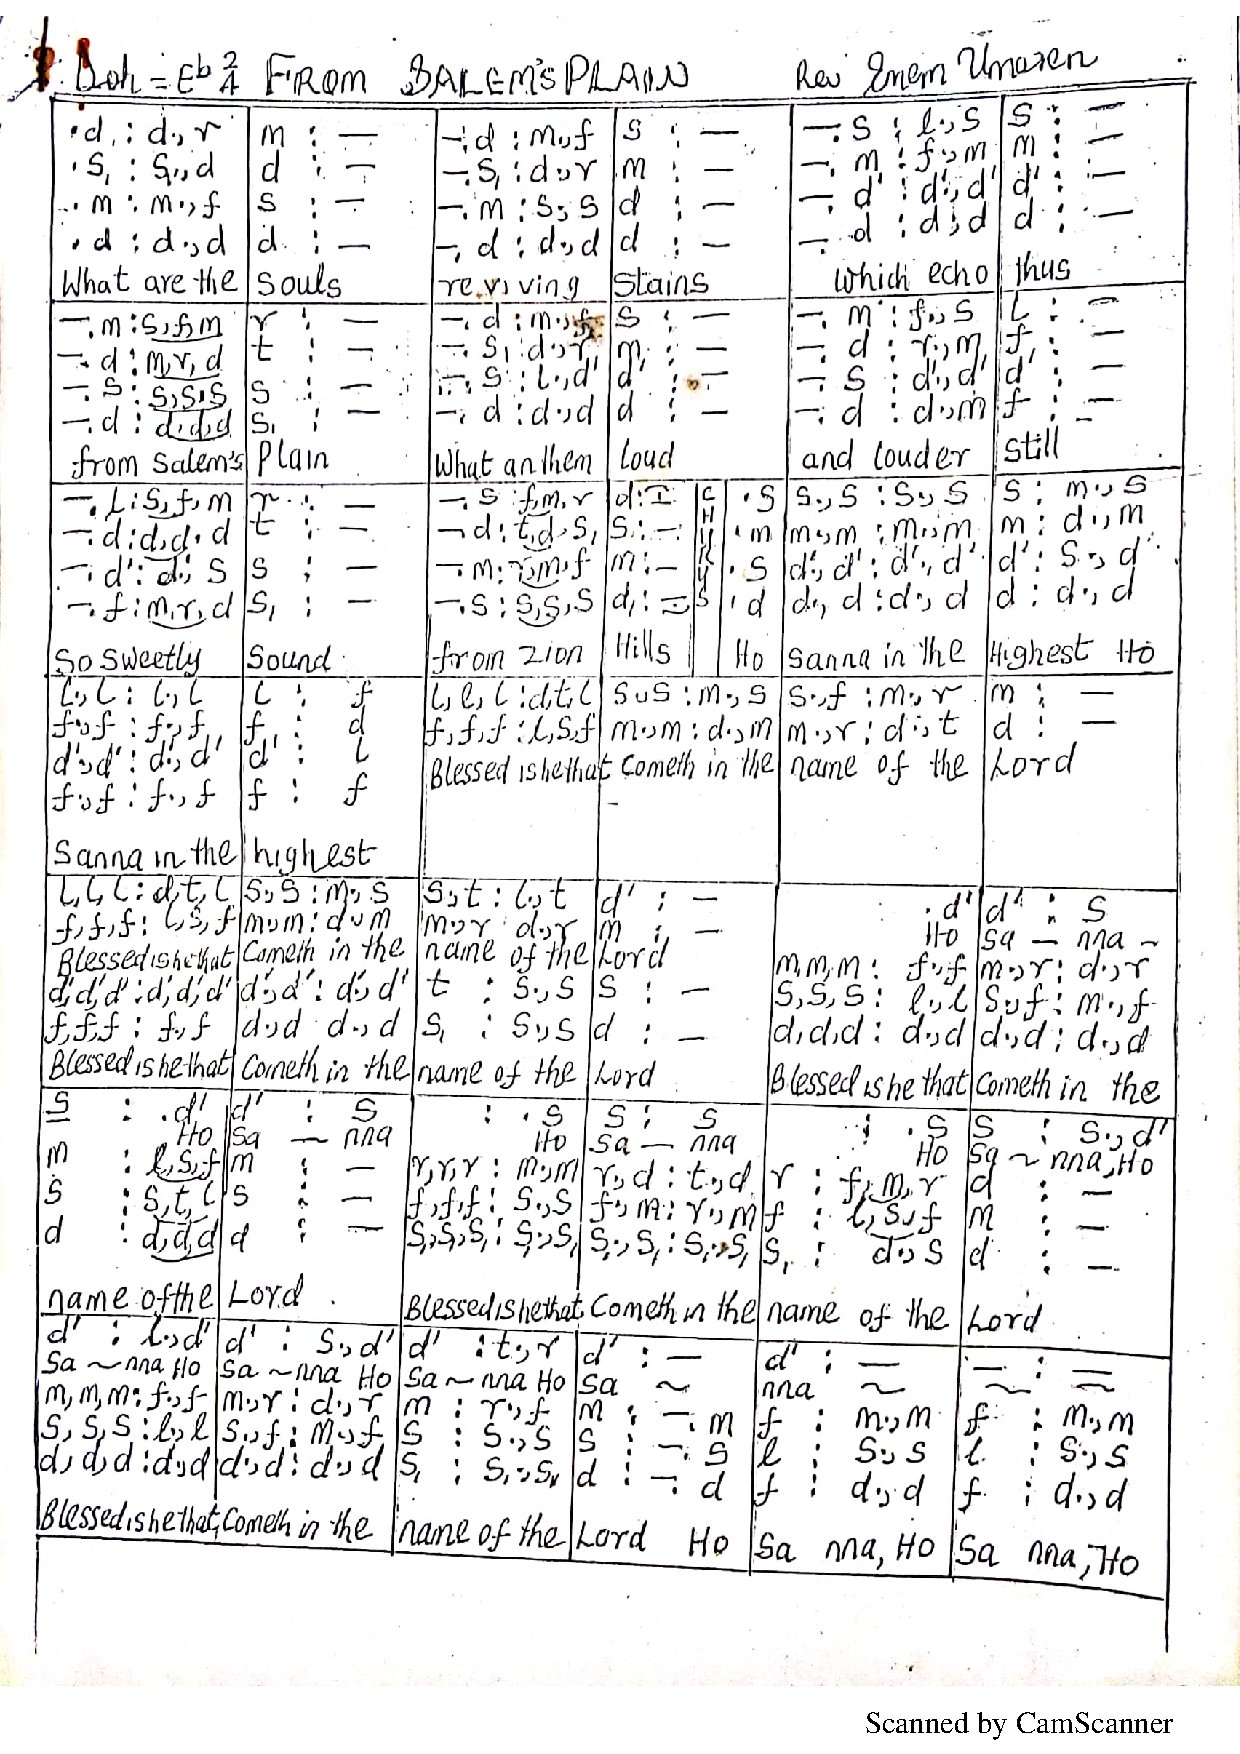 Doh = Eb 2/4 FROM SALEM'S PLAIN Rev Enem Umoren
.d : d.,r | m : — | —.,d : m.,f | s : — | —.s : l.,s | s : —
.s, : s,.,d | d : — | —.s, : d.,r | m : — | —. m : f.,m | m : —
. m : m.,f | s : — | —. m : s., s | d : — | —. d' : d'., d' | d' : —
. d : d.,d | d : — | —. d : d.,d | d : — | —. d : d., d | d : —
What are the | Souls | reviving | Stains | Which echo | thus
—. m : s,f,m | r : — | —. d : m.,f | s : — | —. m : f., s | l : —
—. d : m,r, d | t : — | —. s, : d.,r, | m, : — | —. d : r.,m, | f, : —
—. s : s,s,s | s : — | —. s : l.,d' | d' : — | —. s : d'.,d' | d' : —
—. d : d,d,d | s, : — | —. d : d.,d | d : — | —. d : d.,m | f : —
from Salem's | Plain | What anthem | loud | and louder | Still
—. l : s, f, m | r : — | —. s : f,m, r | d : — | CHORUS | . s | s., s : s., s | s : m., s
—. d : d,d, d | t : — | —. d : t,d, s, | s : — | . m | m., m : m., m | m : d., m
—. d' : d', s | s : — | —. m : r,m, f | m : — | . s | d'., d' : d'., d' | d' : s., d'
—. f : m, r, d | s, : — | —. s : s,s, s | d, : — | . d | d., d : d., d | d : d., d
So Sweetly | Sound | from Zion | Hills | Ho | Sanna in the | Highest Ho
l., l : l., l | l : f | l, l, l : d,t, l | s., s : m., s | s., f : m., r | m : —
f., f : f., f, | f, : d | f, f, f : l, s, f | m., m : d., m | m., r : d., t | d : —
d'., d' : d'., d' | d' : l | Blessed is he that | Cometh in the | name of the | Lord
f., f : f., f | f : f
Sanna in the | highest
l, l, l : d,t, l | s., s : m., s | s., t : l., t | d' : — | . d' | d' : s
f, f, f : l, s, f | m., m : d., m | m., r d., r | m : — | Ho | Sa — nna —
Blessed is he that | Cometh in the | name of the | Lord | m, m, m : f., f | m., r : d., r
d',d',d' : d',d',d' | d'., d' : d'., d' | t : s., s | s : — | s, s, s : l., l | s., f : m., f
f,f,f : f., f | d., d d., d | s, : s., s | d : — | d, d, d : d., d | d., d : d., d
Blessed is he that | Cometh in the | name of the | Lord | Blessed is he that | Cometh in the
s : . d' | d' : s | : . s | s : s | : . s | s : s., d'
Ho | Sa — nna | Ho | Sa — nna | Ho | Sa ~ nna, Ho
m : l, s, f | m : — | r, r, r : m., m | r., d : t., d | r : f, m, r | d : —
s : s, t, l | s : — | f, f, f : s., s | f., m : r., m | f : l, s, f | m : —
d : d, d, d | d : — | s, s, s, : s,., s, | s,., s, : s,., s, | s, : d., s | d : —
name of the | Lord . | Blessed is he that | Cometh in the | name of the | Lord
d' : l., d' | d' : s., d' | d' : t., r | d' : — | d' : — | — : —
Sa ~ nna Ho | Sa ~ nna Ho | Sa ~ nna Ho | Sa ~ | nna ~ | ~ ~
m, m, m : f., f | m., r : d., r | m : r., f | m : —. m | f : m., m | f : m., m
s, s, s : l., l | s., f : m., f | s : s., s | s : —. s | l : s., s | l : s., s
d, d, d : d., d | d., d : d., d | s, : s,., s, | d : —. d | f : d., d | f : d., d
Blessed is he that, | Cometh in the | name of the | Lord Ho | Sa nna, Ho | Sa nna, Ho
Scanned by CamScanner